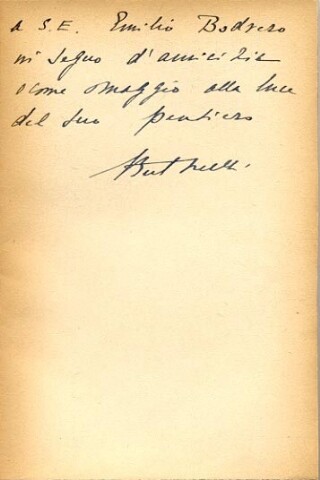 a S.E. Emilio Bodrero
in segno d'amicizia
e come omaggio alla luce
del suo pensiero